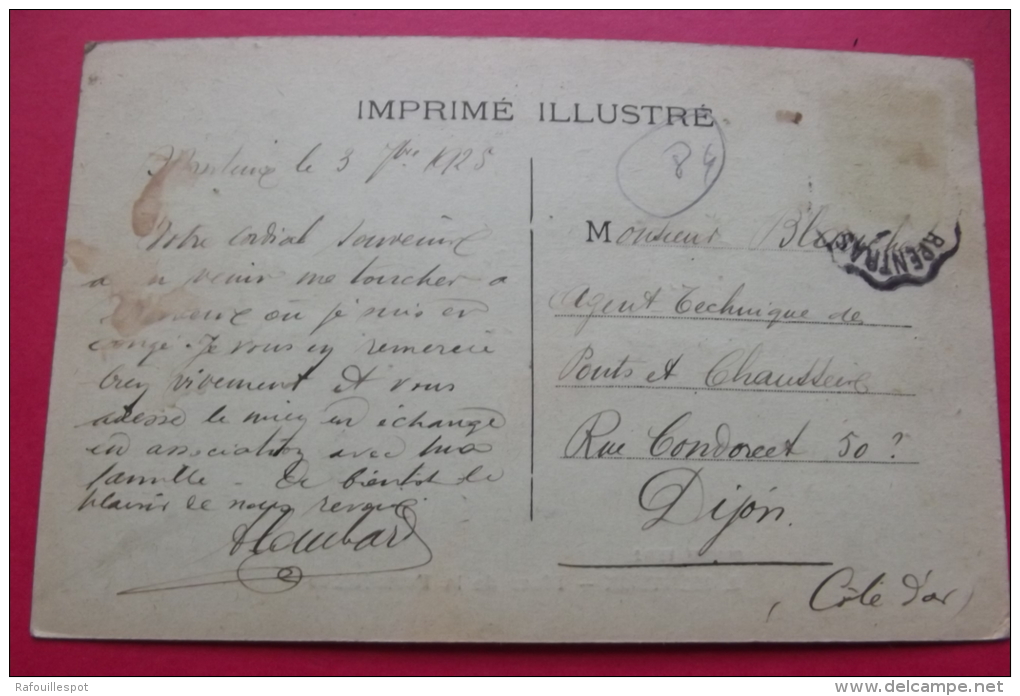 IMPRIMÉ ILLUSTRÉ
84
le 3 7bre 1925
Votre cordial souvenir
venir me toucher a
où je suis en
congé. Je vous en remercie
bien vivement et vous
adesse le mien en échange
en association avec ma
famille. De bientot le
plaisir de nous revoir
Monsieur
Agent Technique de
Ponts et Chaussées
Rue Condorcet 50 ?
Dijon
(Côte d'or)
RPENTRAS
Rafouillespot
delcampe.net